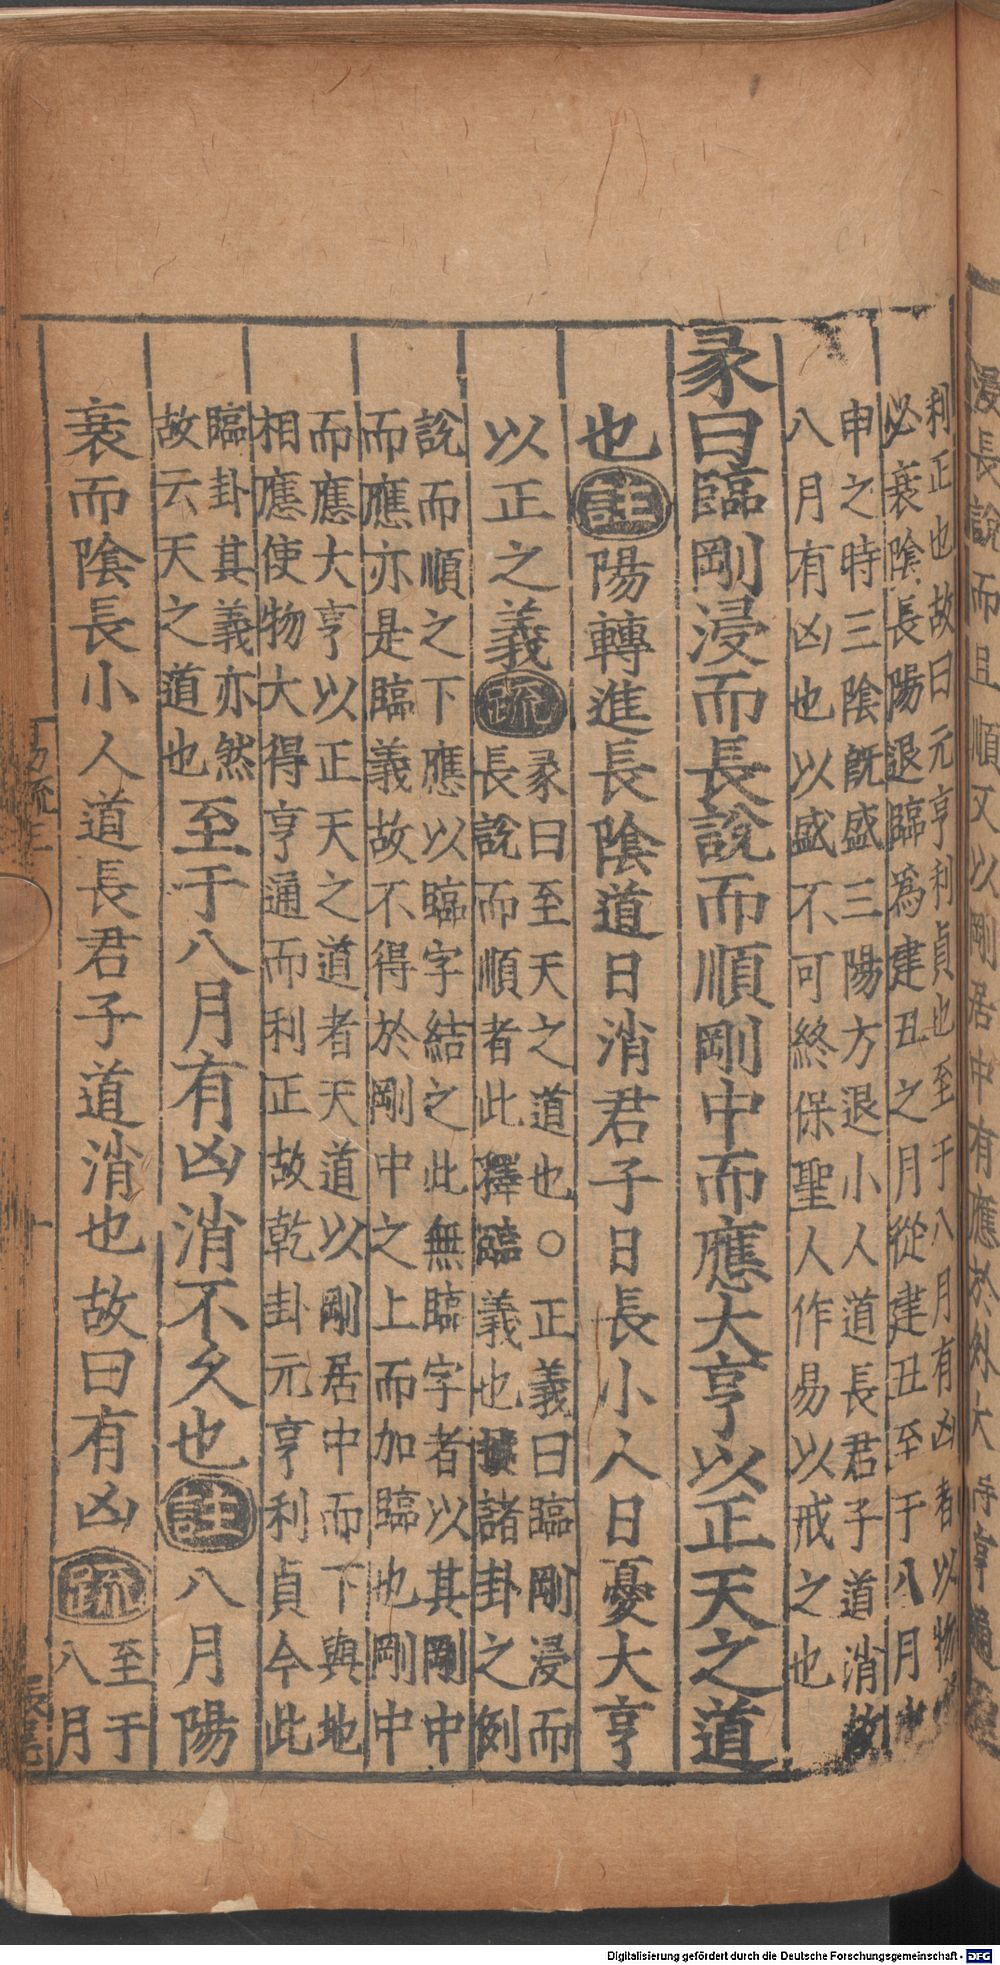 利正也故曰元亨利貞也至于八月有凶者以物
必衰隂長陽退臨爲建丑之月從建丑至于八月
申之時三隂旣盛三陽方退小人道長君子道消故
八月有凶也以盛不可終保聖人作易以戒之也
彖曰臨剛浸而長說而順剛中而應大亨以正天之道
也註陽轉進長隂道日消君子日長小人日憂大亨
以正之義疏
彖曰至天之道也○正義曰臨剛浸而
長說而順者此釋臨義也據諸卦之例
說而順之下應以臨字結之此無臨字者以其剛中
而應亦是臨義故不得於剛中之上而加臨也剛中
而應大亨以正天之道者天道以剛居中而下與地
相應使物大得亨通而利正故乾卦元亨利貞今此
臨卦其義亦然
故云天之道也
至于八月有凶消不久也註八月陽
衰而隂長小人道長君子道消也故曰有凶疏
至于
八月
易疏三
浸長說而且順又以剛居中有應於外大得亨通
Digitalisierung gefördert durch die Deutsche Forschungsgemeinschaft - DFG